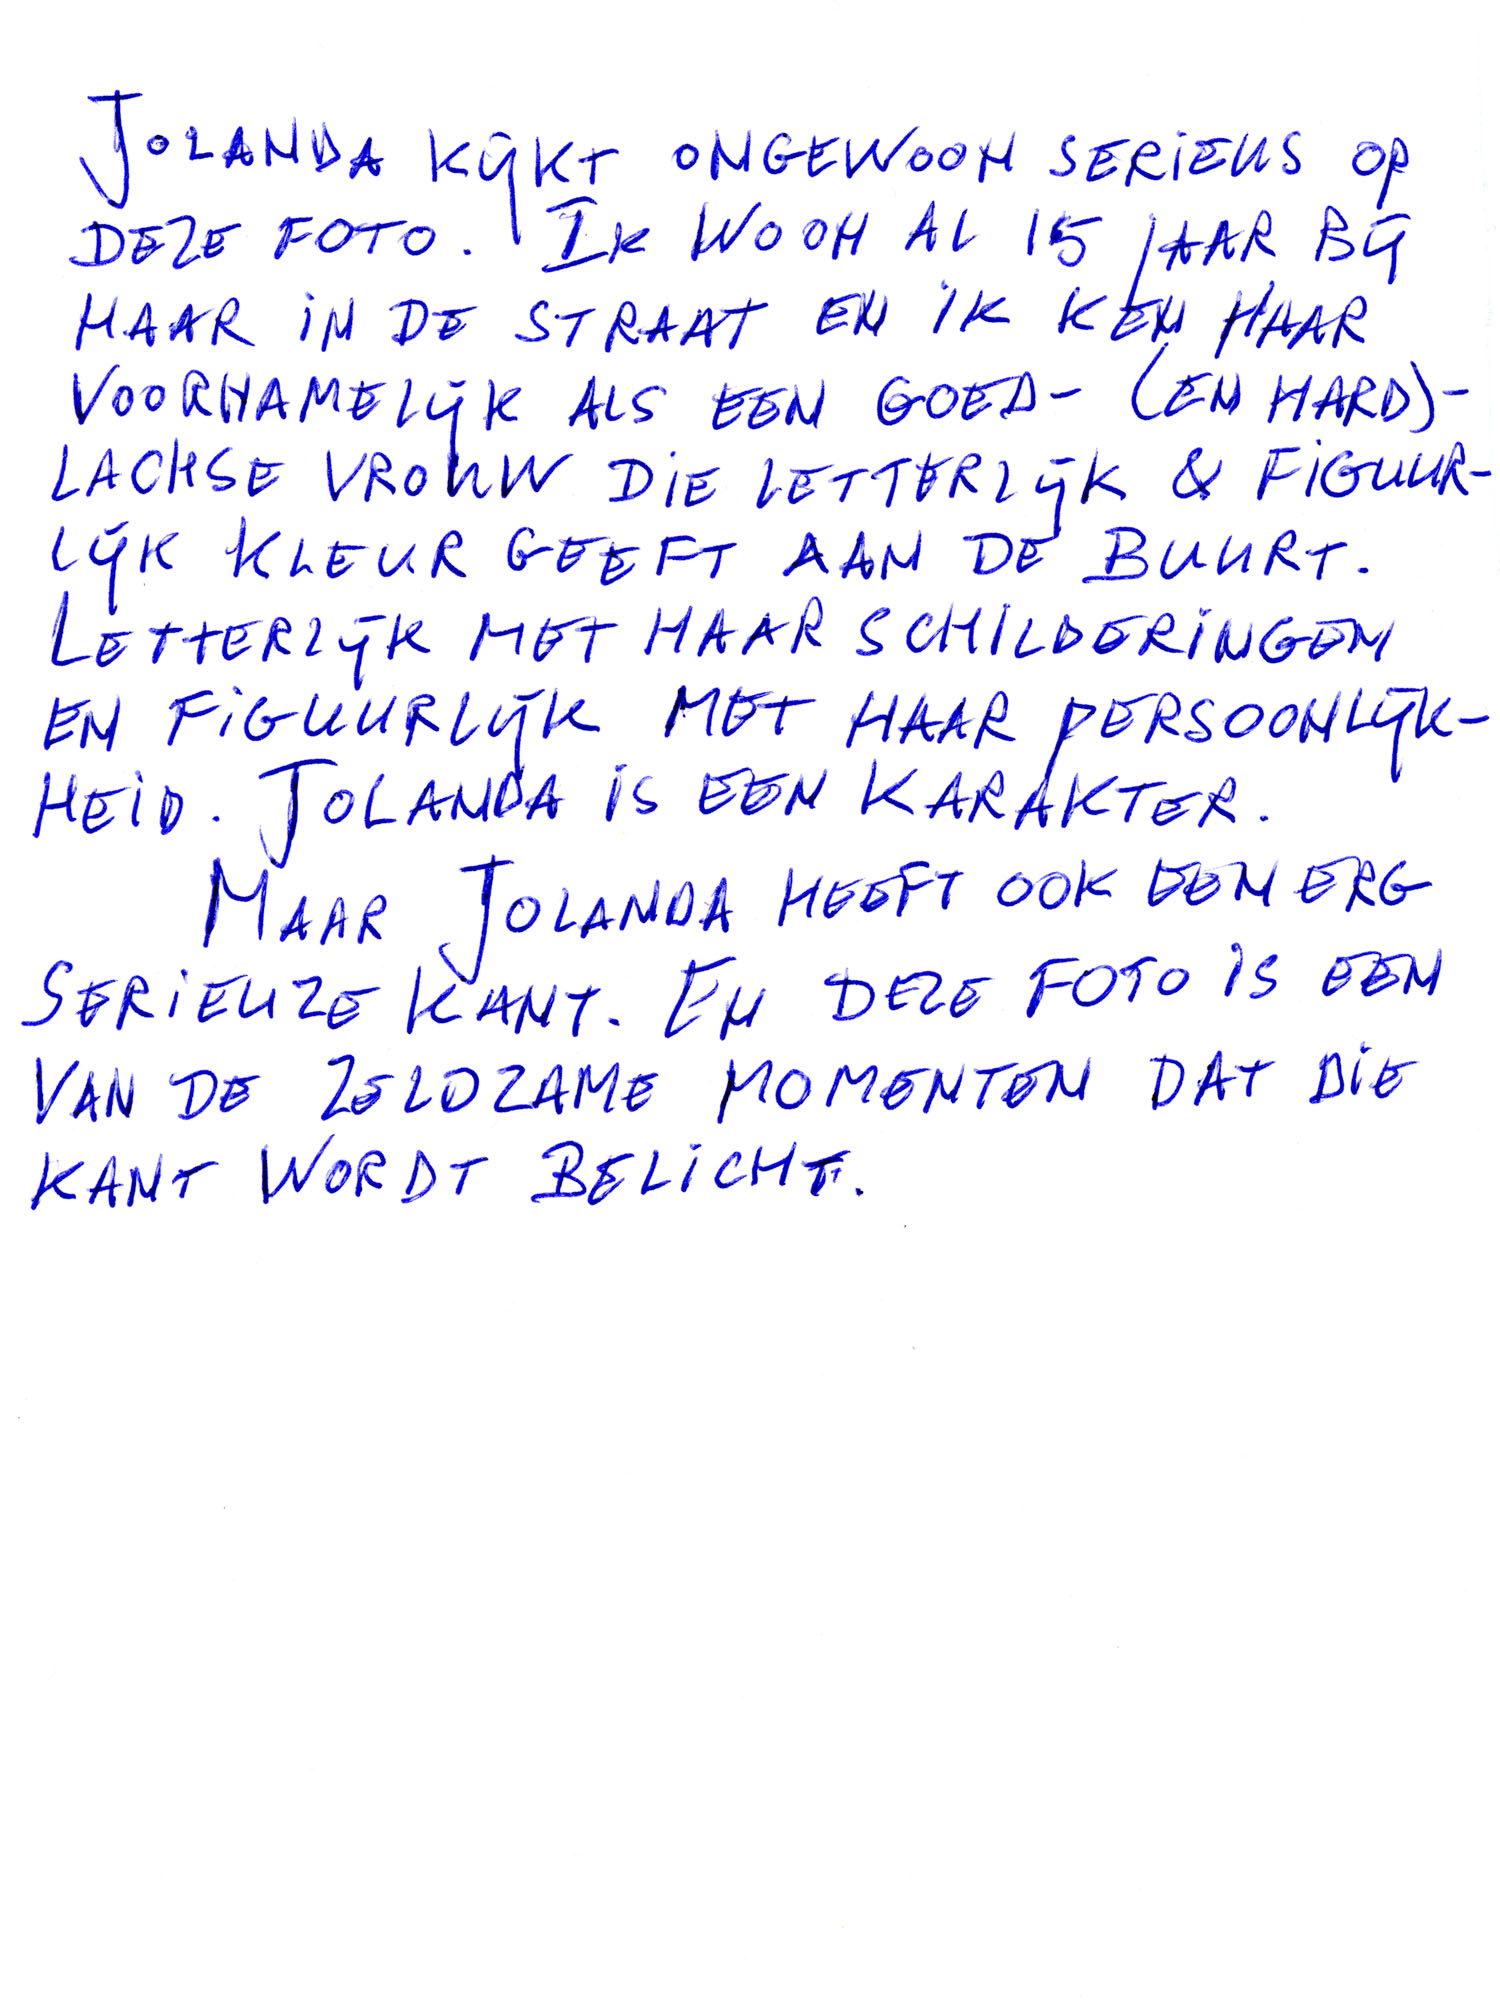 JOLANDA KIJKT ONGEWOON SERIEUS OP
DEZE FOTO. IK WOON AL 15 JAAR BIJ
HAAR IN DE STRAAT EN IK KEN HAAR
VOORNAMELIJK ALS EEN GOED- (EN HARD)-
LACHSE VROUW DIE LETTERLIJK & FIGUUR-
LIJK KLEUR GEEFT AAN DE BUURT.
LETTERLIJK MET HAAR SCHILDERINGEN
EN FIGUURLIJK MET HAAR PERSOONLIJK-
HEID. JOLANDA IS EEN KARAKTER.
MAAR JOLANDA HEEFT OOK EEN ERG
SERIEUZE KANT. EN DEZE FOTO IS EEN
VAN DE ZELDZAME MOMENTEN DAT DIE
KANT WORDT BELICHT.